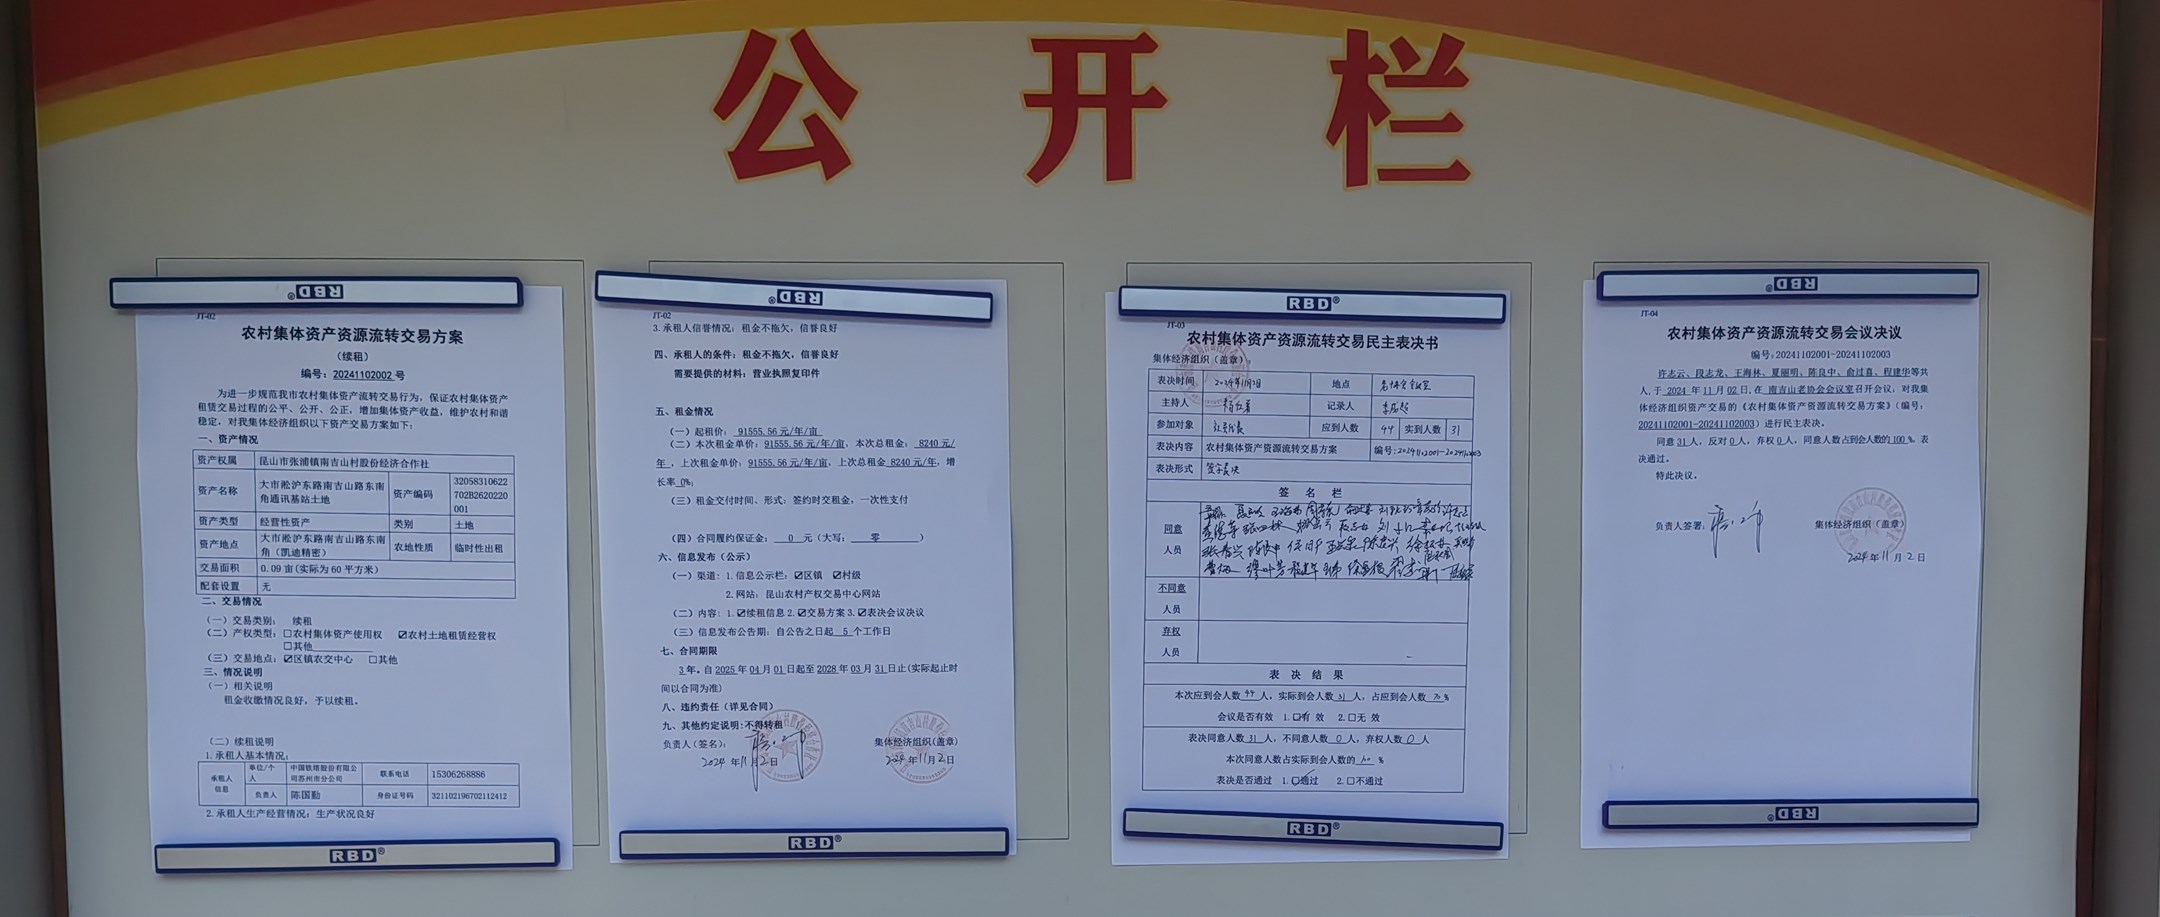 公开栏
RBD®
JT-02
农村集体资产资源流转交易方案
（续租）
编号：20241102002 号
为进一步规范我市农村集体资产流转交易行为，保证农村集体资产
租赁交易过程的公平、公开、公正，增加集体资产收益，维护农村和谐
稳定，对我集体经济组织以下资产交易方案如下：
一、资产情况
资产权属 昆山市张浦镇南吉山村股份经济合作社
资产名称 大市淞沪东路南吉山路东南角通讯基站土地 资产编码 32058310622702B2620220001
资产类型 经营性资产 类别 土地
资产地点 大市淞沪东路南吉山路东南角（凯迪精密） 农地性质 临时性出租
交易面积 0.09 亩(实际为 60 平方米）
配套设置 无
二、交易情况
（一）交易类别： 续租
（二）产权类型：☐农村集体资产使用权 ☑农村土地租赁经营权
☐其他
（三）交易地点：☑区镇农交中心 ☐其他
三、情况说明
（一）相关说明
租金收缴情况良好，予以续租。
（二）续租说明
1. 承租人基本情况：
承租人信息 单位/个人 中国铁塔股份有限公司苏州市分公司 联系电话 15306268886
负责人 陈国勤 身份证号码 321102196702112412
2. 承租人生产经营情况：生产状况良好
RBD®
RBD®
JT-02
3. 承租人信誉情况：租金不拖欠，信誉良好
四、承租人的条件：租金不拖欠，信誉良好
需要提供的材料：营业执照复印件
五、租金情况
（一）起租价： 91555.56 元/年/亩
（二）本次租金单价：91555.56 元/年/亩，本次总租金： 8240 元/
年 ，上次租金单价：91555.56 元/年/亩，上次总租金 8240 元/年，增
长率 0%；
（三）租金交付时间、形式：签约时交租金，一次性支付
（四）合同履约保证金： 0 元（大写： 零 ）
六、信息发布（公示）
（一）渠道：1. 信息公示栏：☑区镇 ☑村级
2. 网站：昆山农村产权交易中心网站
（二）内容：1. ☑续租信息 2. ☑交易方案 3. ☑表决会议决议
（三）信息发布公告期：自公告之日起 5 个工作日
七、合同期限
3 年。自 2025 年 04 月 01 日起至 2028 年 03 月 31 日止(实际起止时
间以合同为准)
八、违约责任（详见合同）
九、其他约定说明：不得转租
负责人（签名）： 集体经济组织(盖章)
2024 年 11 月 2 日 2024 年 11 月 2 日
RBD®
RBD®
JT-03
农村集体资产资源流转交易民主表决书
集体经济组织（盖章）：
表决时间 2024年11月2日 地点
主持人 记录人
参加对象 应到人数 44 实到人数 31
表决内容 农村集体资产资源流转交易方案 编号：20241102001-20241102003
表决形式 签字表决
签 名 栏
同意人员
不同意人员
弃权人员
表 决 结 果
本次应到会人数 44 人，实际到会人数 31 人，占应到会人数 70 %
会议是否有效 1. ☑有 效 2. ☐无 效
表决同意人数 31 人，不同意人数 0 人，弃权人数 0 人
本次同意人数占实际到会人数的 100 %
表决是否通过 1. ☑通过 2. ☐不通过
RBD®
RBD®
JT-04
农村集体资产资源流转交易会议决议
编号：20241102001-20241102003
许志云、段志龙、王海林、夏丽明、陈良中、俞过喜、程建华等共
人，于 2024 年 11 月 02 日，在 南吉山老协会会议室召开会议，对我集
体经济组织资产交易的《农村集体资产资源流转交易方案》（编号：
20241102001-20241102003）进行民主表决。
同意 31 人，反对 0 人，弃权 0 人，同意人数占到会人数的 100 %，表
决通过。
特此决议。
负责人签署： 集体经济组织（盖章）
2024 年 11 月 2 日
RBD®